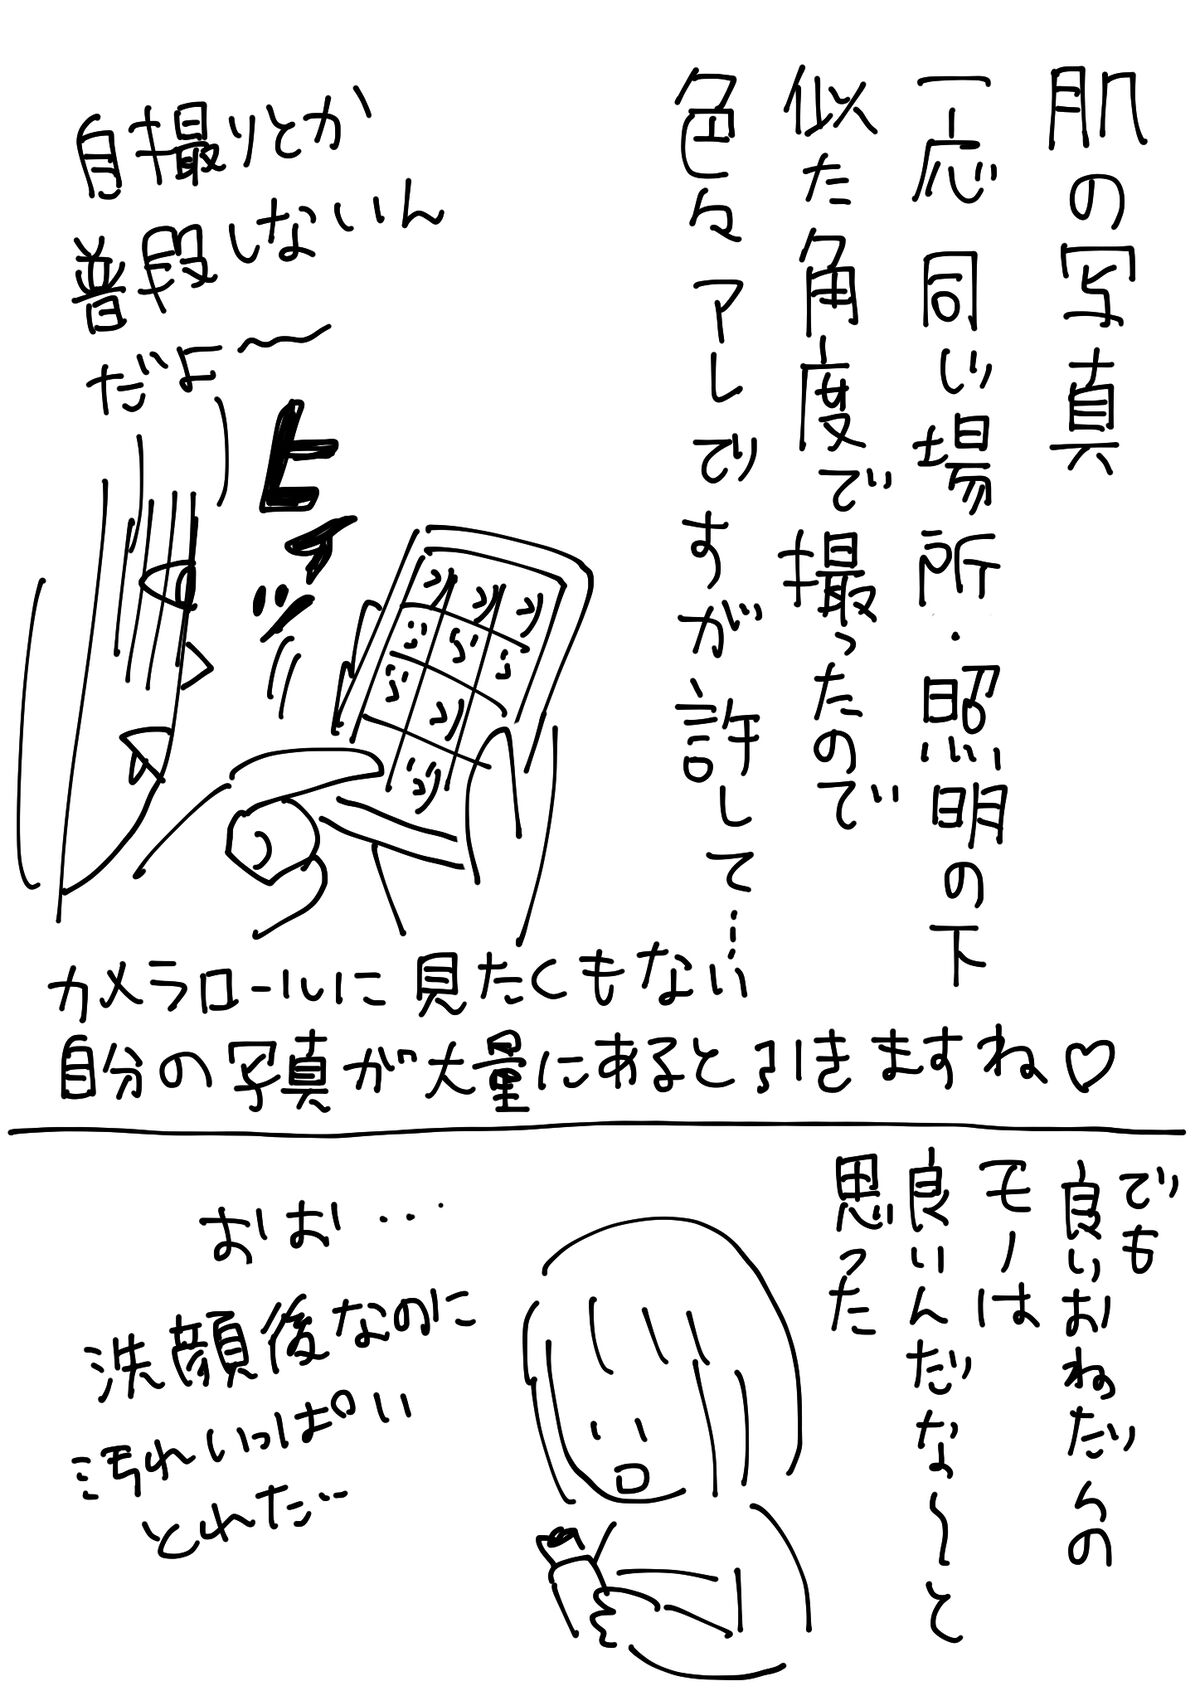 肌の写真
一応 同じ場所・照明の下
似た角度で撮ったので
色々アレですが許して…
自撮りとか
普段しないん
だよ〜
ヒィッ
カメラロールに見たくもない
自分の写真が大量にあると引きますね♡
でも
良いおねだんの
モノは
良いんだな〜と
思った
おお…
洗顔後なのに
汚れいっぱい
とれた…